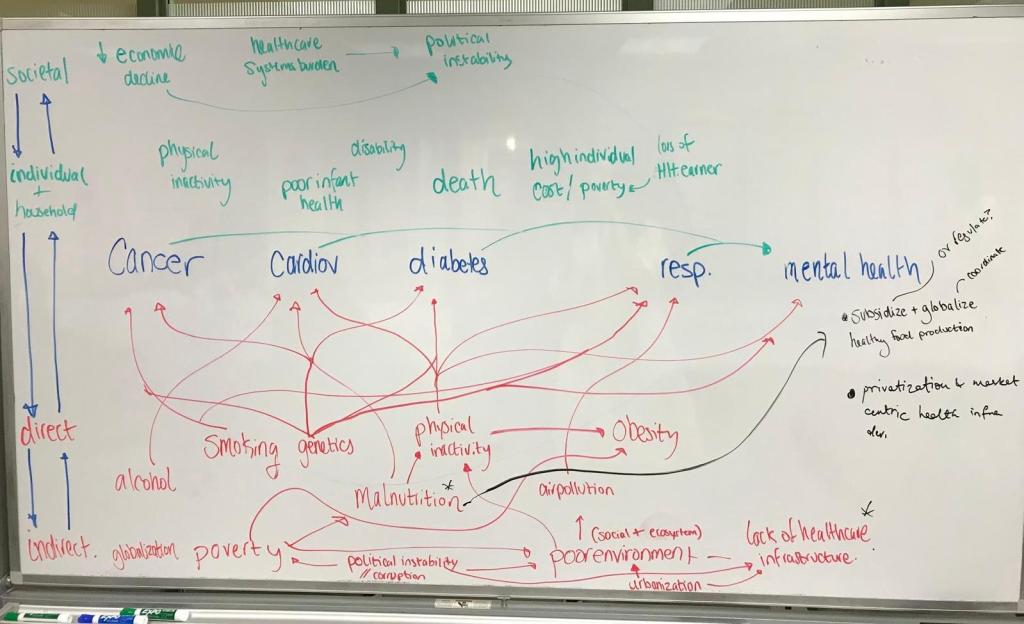 societal
↓ economic
decline
healthcare
systems burden
political
instability
individual
+
household
physical
inactivity
poor infant
health
disability
death
high individual
cost / poverty
loss of
HH earner
Cancer
Cardiov
diabetes
resp.
mental health
or regulate?
coordinate
• subsidize + globalize
healthy food production
• privatization & market
centric health infra
dev.
direct
alcohol
Smoking
genetics
physical
inactivity
Obesity
Malnutrition *
air pollution
indirect.
globalization
poverty
political instability
// corruption
(social + ecosystem)
poor environment
urbanization
lack of healthcare *
infrastructure.
EXPO